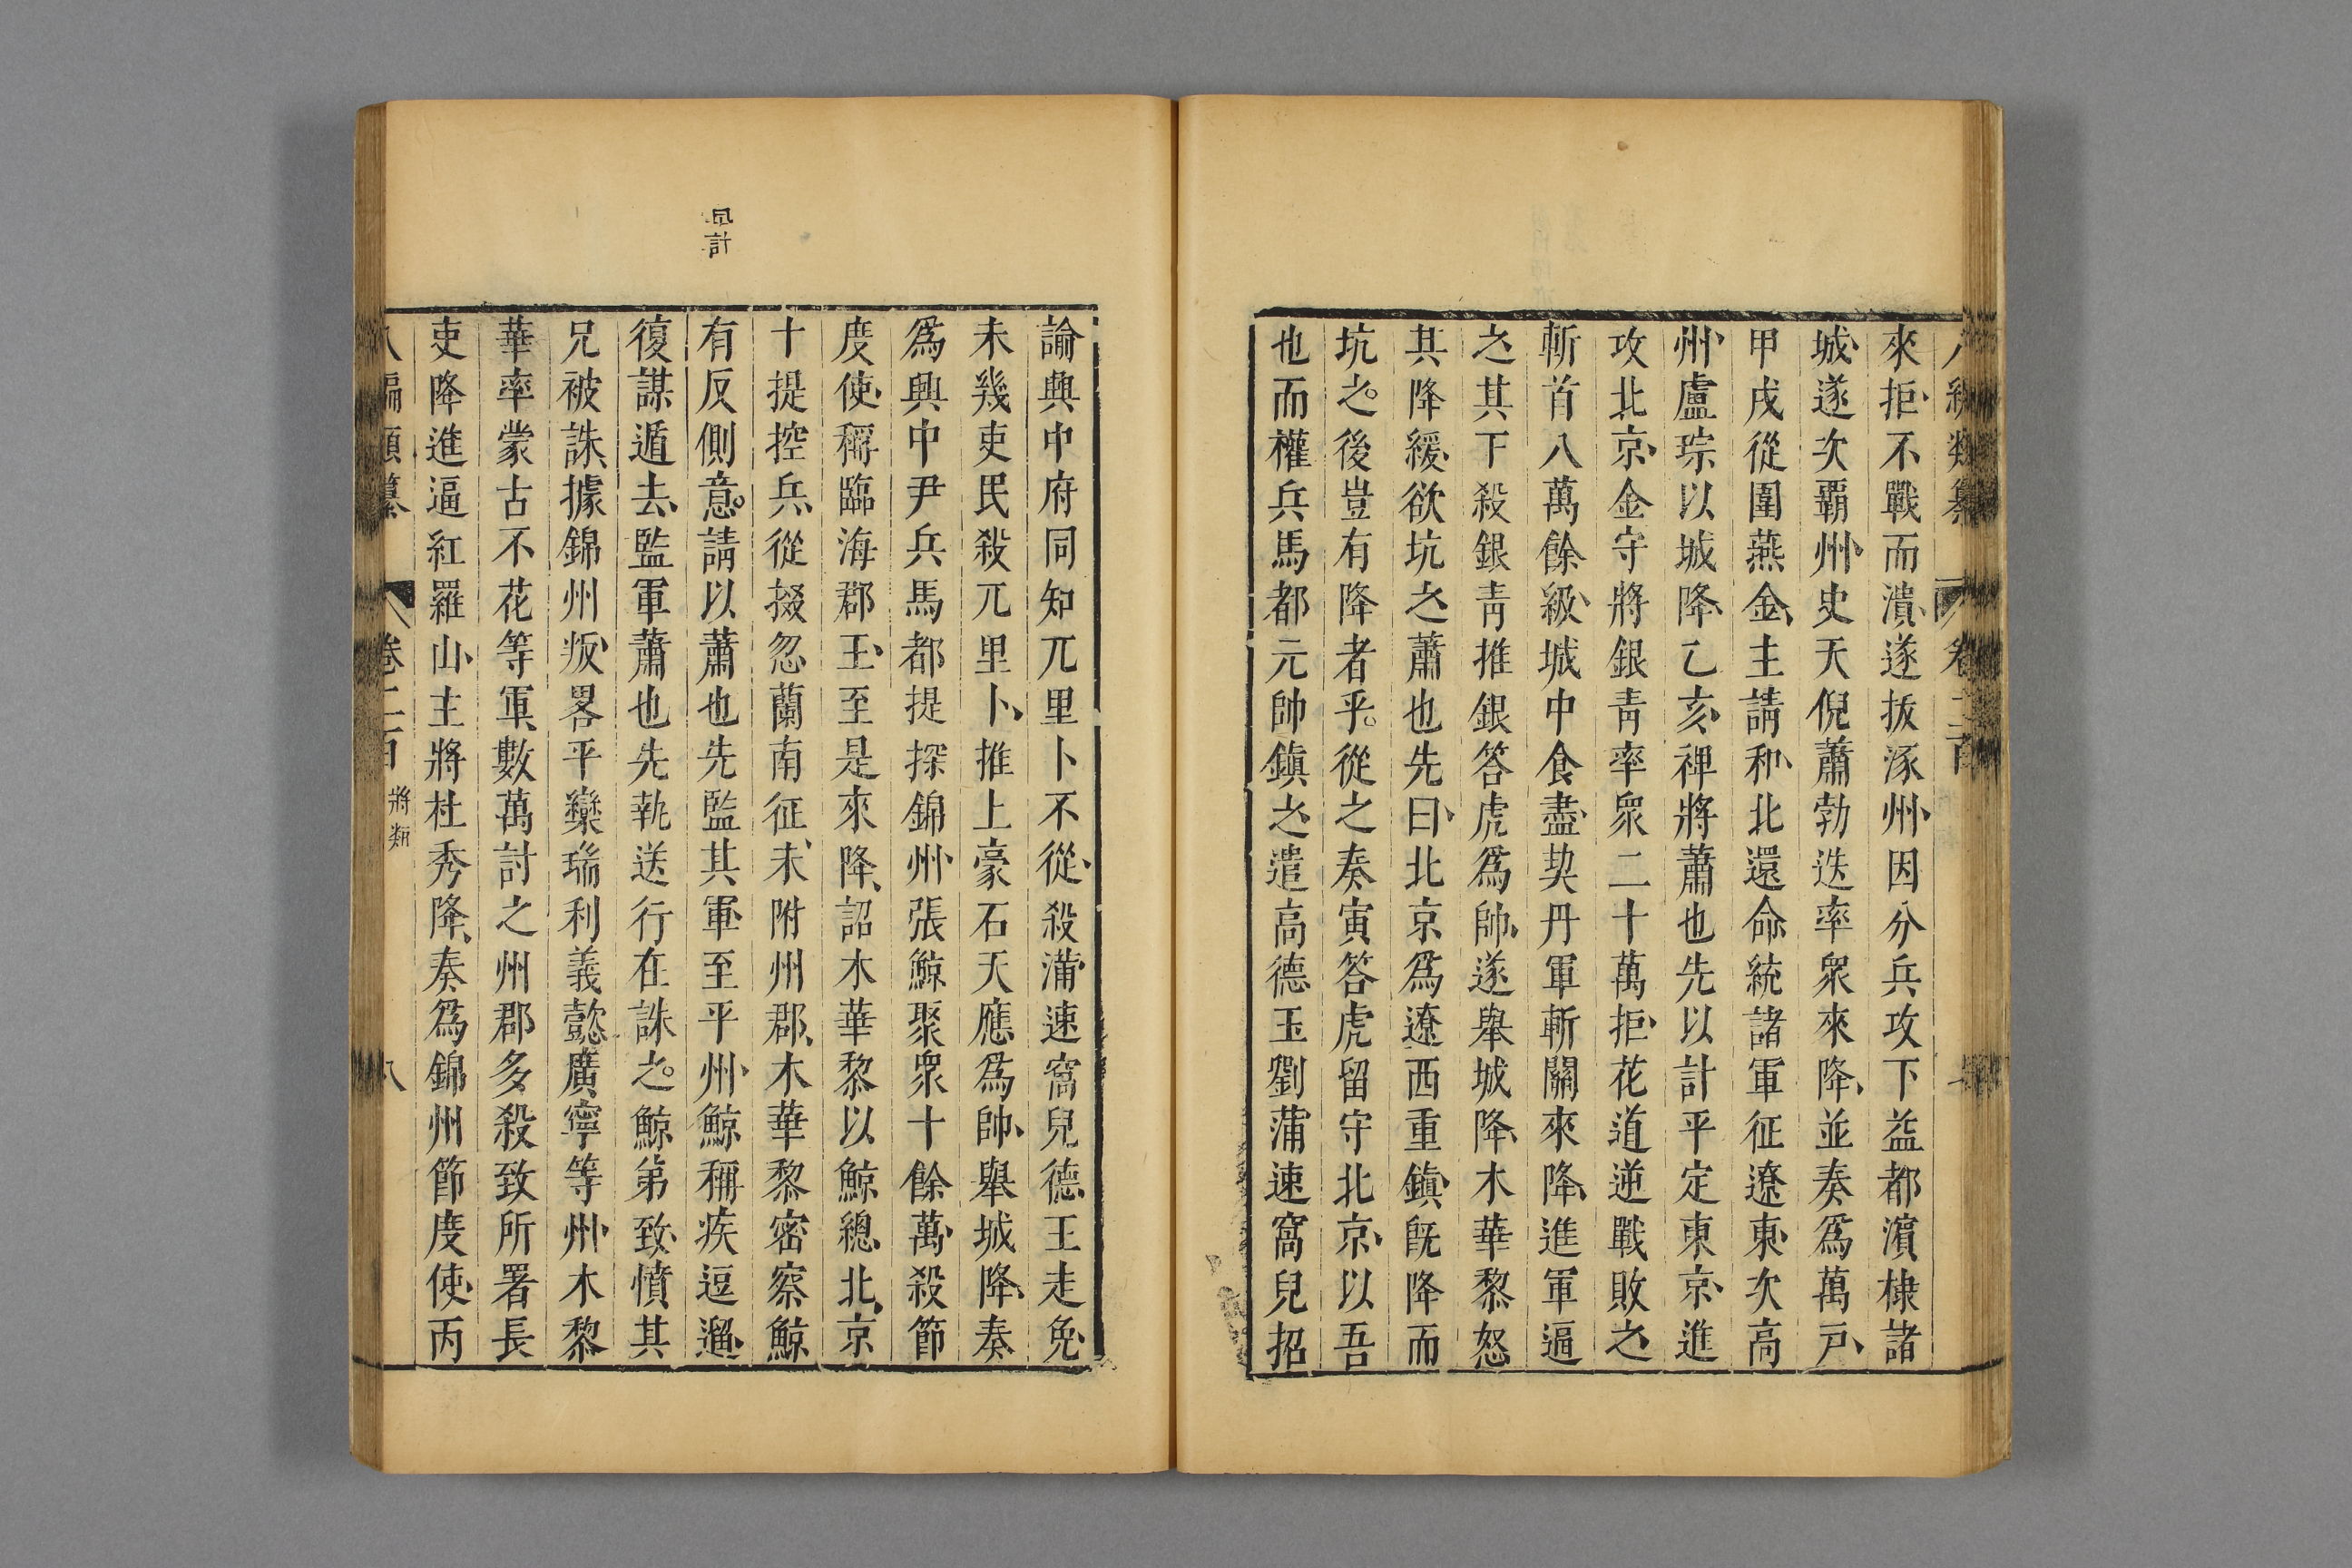 來拒不戰而潰遂拔涿州因分兵攻下益都濵棣諸
城遂次覇州史天倪蕭勃迭率衆來降並奏爲萬戸
甲戌從圍燕金主請和北還命統諸軍征遼東次高
州盧琮以城降乙亥裨將蕭也先以計平定東京進
攻北京金守將銀青率衆二十萬拒花道逆戰敗之
斬首八萬餘級城中食盡契丹軍斬關來降進軍逼
之其下殺銀青推銀答虎爲帥遂舉城降木華黎怒
其降緩欲坑之蕭也先曰北京爲遼西重鎮旣降而
坑之後豈有降者乎從之奏寅答虎留守北京以吾
也而權兵馬都元帥鎮之遣高德玉劉蒲速窩兒招
諭興中府同知兀里卜不從殺蒲速窩兒德王走免
未幾吏民殺兀里卜推上豪石天應爲帥舉城降奏
爲興中尹兵馬都提探錦州張鯨聚衆十餘萬殺節
度使稱臨海郡王至是來降詔木華黎以鯨總北京
十提控兵從掇忽蘭南征未附州郡木華黎密察鯨
有反側意請以蕭也先監其軍至平州鯨稱疾逗遛
復謀遁去監軍蕭也先執送行在誅之鯨第致憤其
兄被誅據錦州叛畧平欒瑞利義懿廣寧等州木黎
華率蒙古不花等軍數萬討之州郡多殺致所署長
吏降進逼紅羅山主將杜秀降奏爲錦州節度使丙
八編類纂 卷二百 將類 八